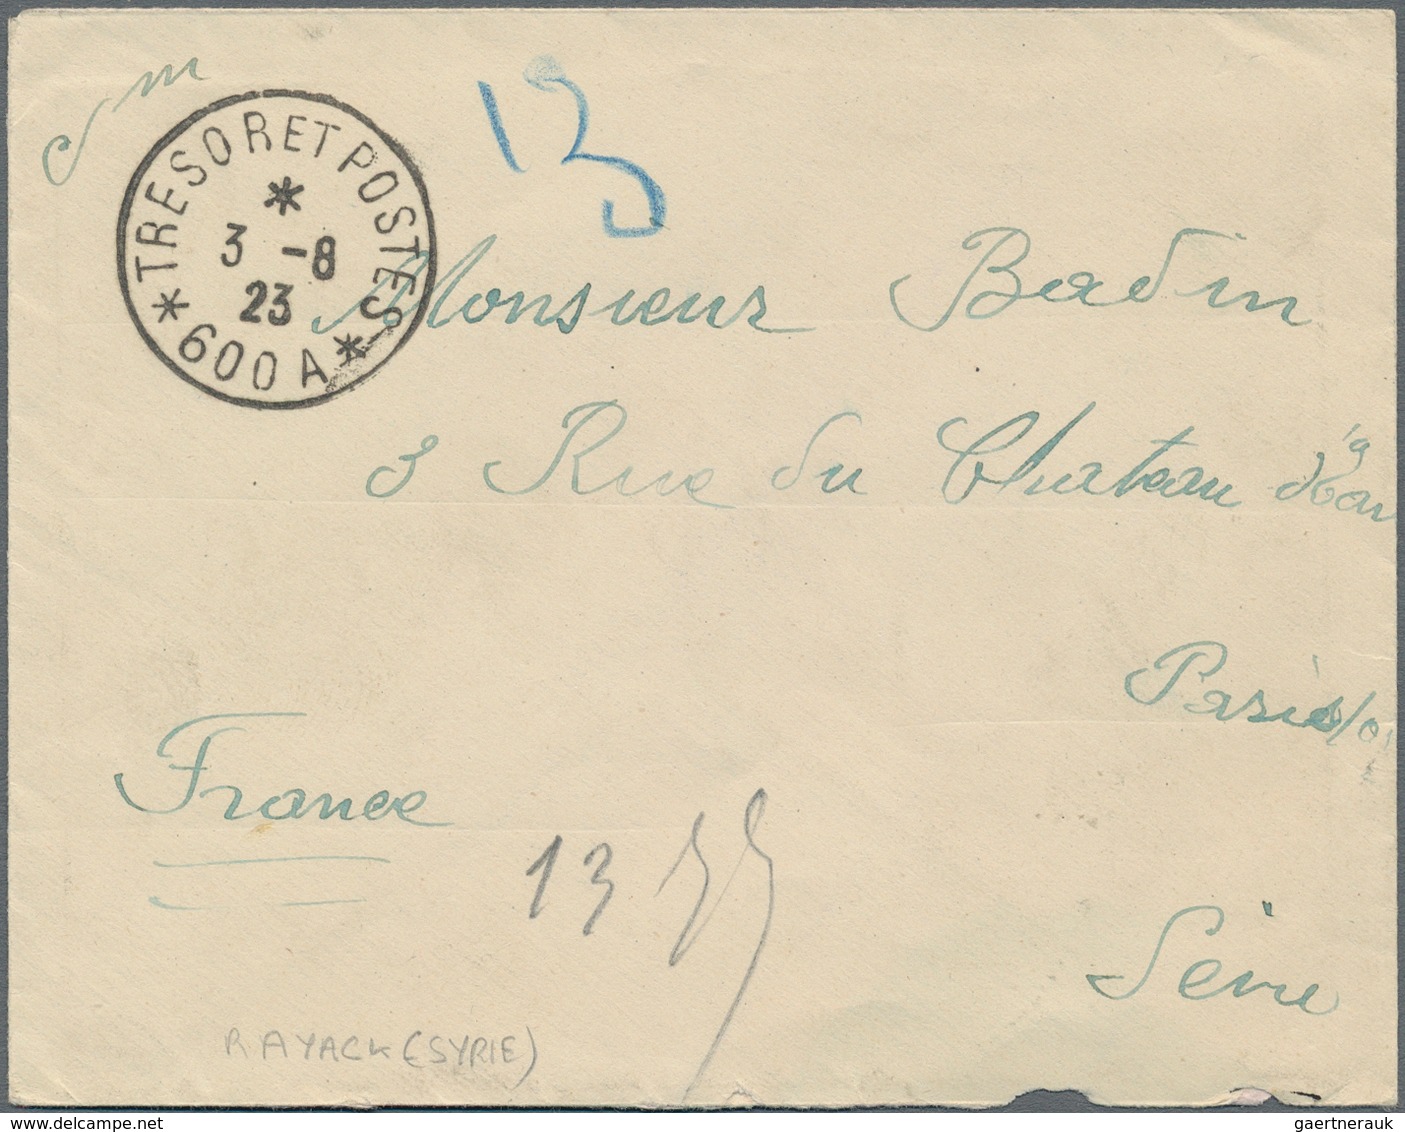 Sm
13
* TRESOR ET POSTES *
*
3 -8
23
600 A
Monsieur Badin
3 Rue du Chateau d'Eau
Paris
France
13
Seine
RAYACK (SYRIE)
gaertnerauk